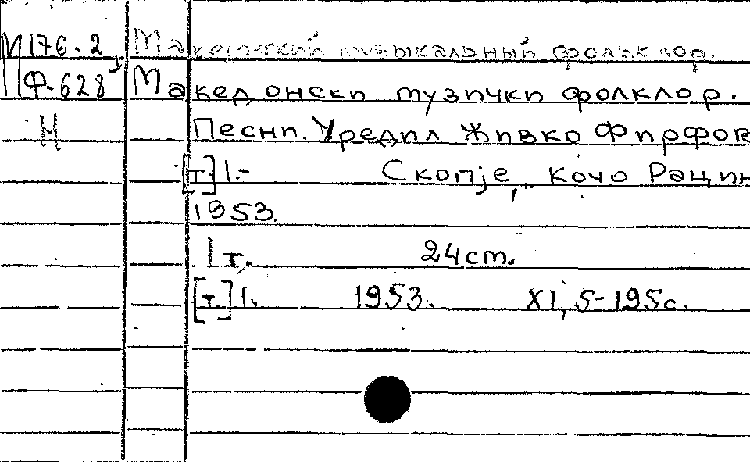 М176.2 Македонский музыкальный фольклор.
Ф-628 Македонски музички фолклор.
Н Песни. Уредил Живко Фирфов
[т.] 1.- Скопје, "Кочо Рацин
1953.
1 т. 24 cm.
[т.] 1. 1953. XI, 5-195 с.